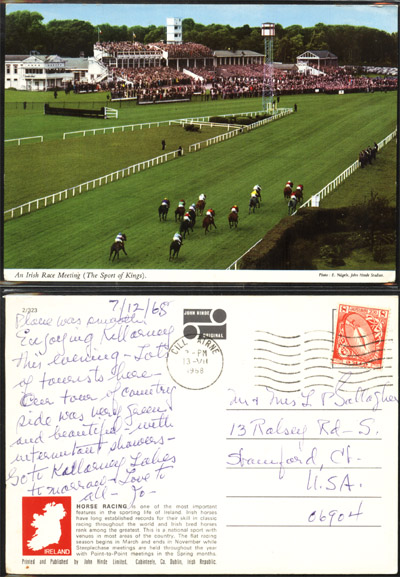 An Irish Race Meeting (The Sport of Kings).
Photo: E. Nägele, John Hinde Studios.
2/323
7/12/68
Plane was smooth.
Enjoying Killarney
this evening - Lots
of tourists here -
Our tour of country
side was very green
and beautiful - with
intermittant showers -
Go to Killarney Lakes
tomorrow - Love to
all - Jo -
JOHN HINDE
ORIGINAL
CILL AIRNE
-PM
13 VII
1968
Mr & Mrs L P Gallagher
13 Ralsey Rd - S.
Stamford, Ct.
U.S.A.
06904
IRELAND
HORSE RACING is one of the most important
features in the sporting life of Ireland. Irish horses
have long established records for their skill in classic
racing throughout the world and Irish bred horses
rank among the greatest. This is a national sport with
venues in most areas of the country. The flat racing
season begins in March and ends in November while
Steeplechase meetings are held throughout the year
with Point-to-Point meetings in the Spring months.
Printed and Published by John Hinde Limited, Cabinteely, Co. Dublin, Irish Republic.